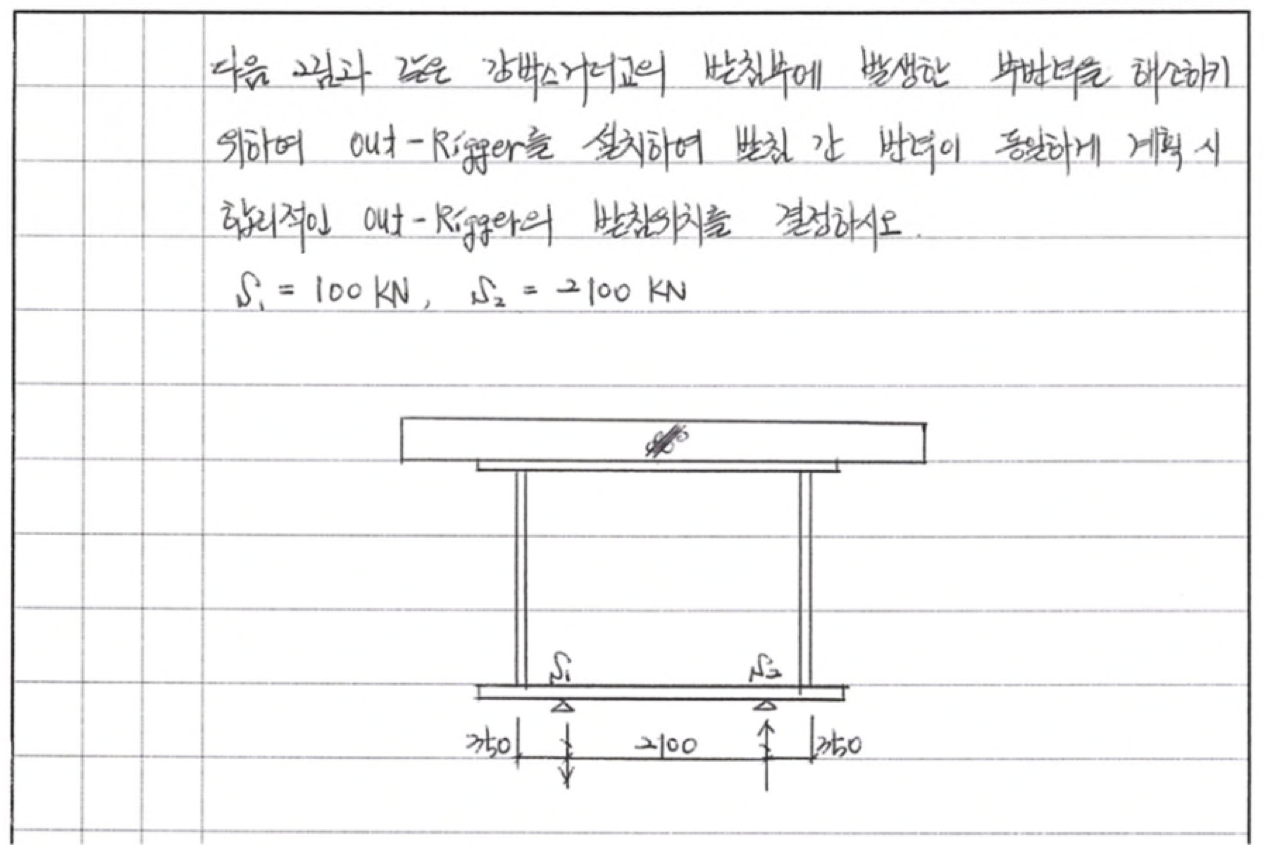 다음 그림과 같은 강박스거더교의 받침부에 발생한 부반력을 해소하기
위하여 out-Rigger를 설치하여 받침 간 반력이 동일하게 계획 시
합리적인 out-Rigger의 받침위치를 결정하시오.
S₁ = 100 KN, S₂ = 2100 KN
S₁ S₂
350 2100 350